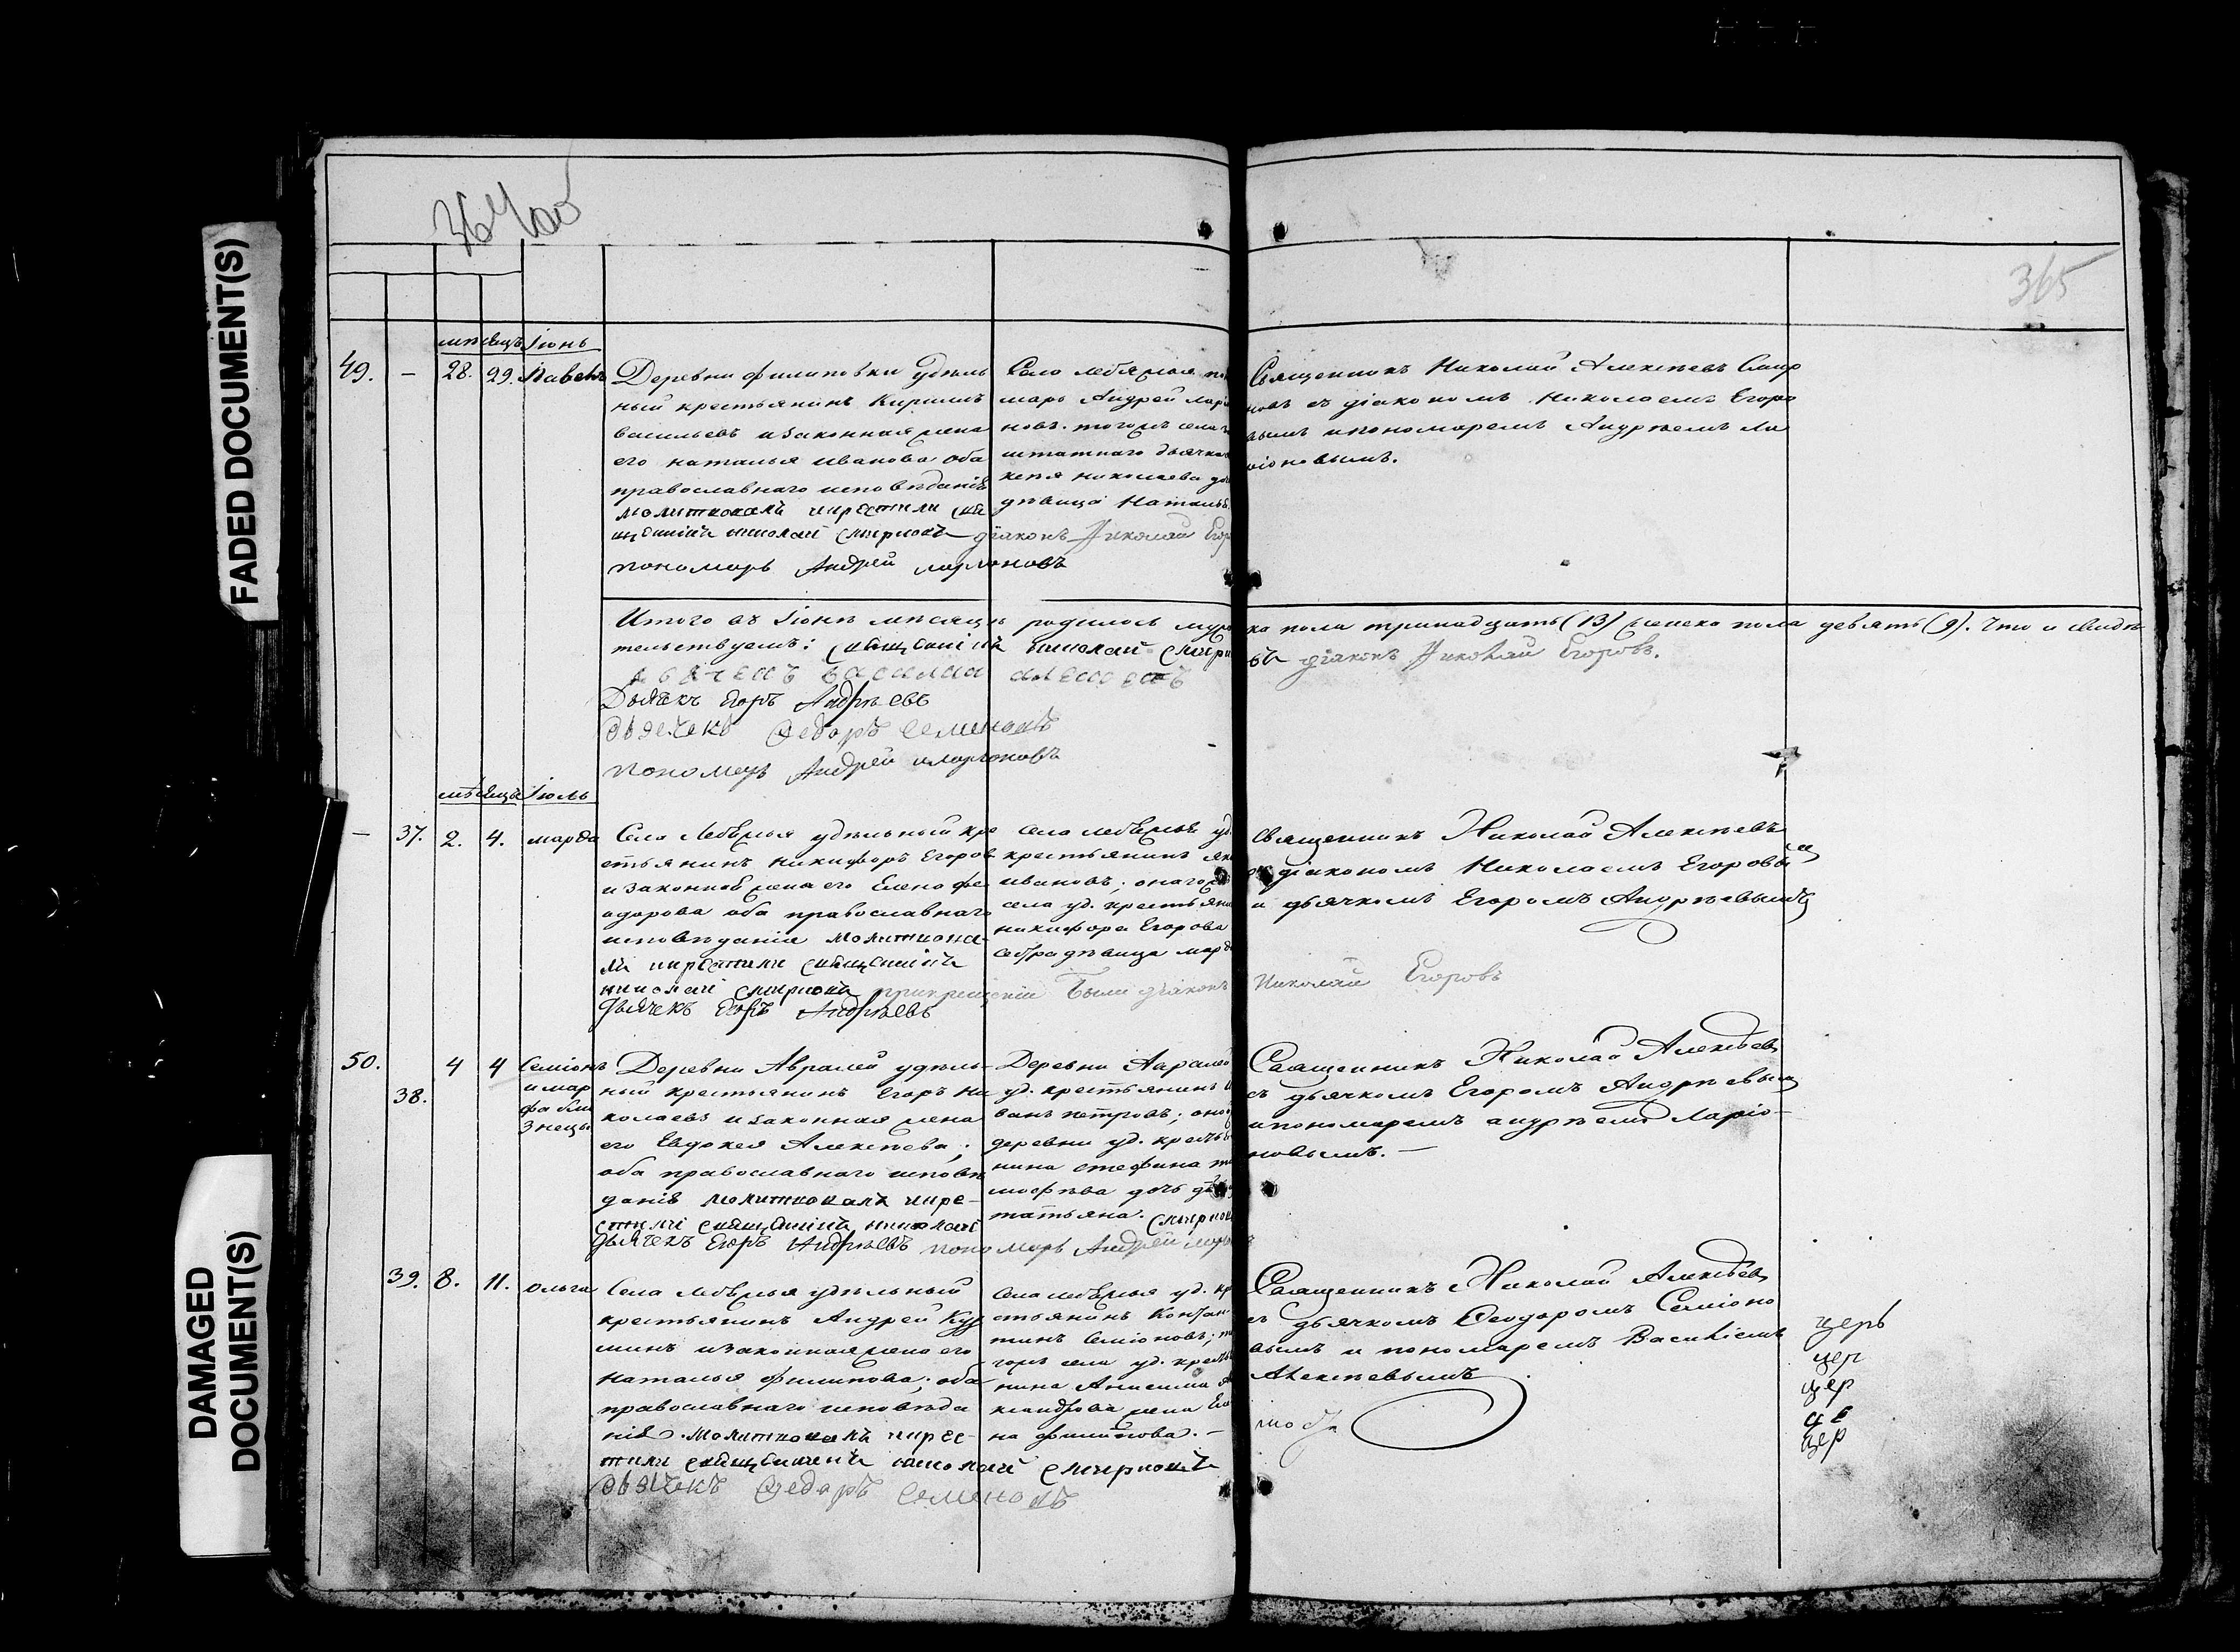 FADED DOCUMENT(S)
DAMAGED
DOCUMENT(S)
365
мѣсяцъ Іюнь
49. — 28. 29. Павелъ
Деревни Филиповки удѣль
ный крестьянинъ Кирилъ
васильевъ и законная жена
его наталья иванова оба
православнаго исповѣданія
молитвовалъ и крестилъ свя
щенникъ николай смирновъ діаконъ Николай Егор
пономарь Андрей ларионовъ
Село лебяжья по
марь Андрей лари
новъ. тогожъ села
штатнаго дьячка
николаева
дѣвица Наталья
Священникъ Николай Алексѣевъ Смир
новъ съ діакономъ Николаемъ Егоро
вымъ и пономаремъ Андрѣемъ Ла
ріоновымъ.
Итого въ Іюнѣ мѣсяцѣ родилось муже
ка пола тринадцать (13) женска пола девять (9). Что и свидѣ
тельствуемъ: священникъ николай смирн
въ діаконъ Николай Егоровъ.
дьячекъ василий алексеевъ
Дьячекъ Егоръ Андрѣевъ
дьячекъ Федоръ Семеновъ
пономарь Андрей иларионовъ
мѣсяцъ Іюль
— 37. 2. 4. марѳа
Села Лебяжья удѣльный кре
стьянинъ никифоръ Егоров
и законная жена его Елена фе
одорова оба православнаго
исповѣданія молитвова
лъ и крестилъ священникъ
николай смирновъ при крещеніи были діаконъ
Николай Егоровъ
дьячекъ Егоръ Андрѣевъ
села лебяжья уд.
крестьянинъ яко
ивановъ; онаго же
села уд. крестьяни
никифора Егорова
сестра дѣвица марѳ
священникъ Николай Алексѣевъ
съ діакономъ Николаемъ Егоровы
и дьячкомъ Егоромъ Андрѣевымъ
50. 38. 4 4
Семіонъ
и марѳа близнецы
Деревни Авралей удѣль-
ный крестьянинъ Егоръ Ни
колаевъ и законная жена
его Евдокея Алексѣева;
оба православнаго исповѣ
данія молитвовалъ и кре-
стилъ священникъ николай
смирнов
дьячекъ Егоръ Андрѣевъ пономарь Андрей ларио
Деревни Авралей
уд. крестьянинъ И
ванъ петровъ; оной
деревни уд. крестья
нина стефана ти
мофѣва дочь дѣв
татьяна.
Священникъ Николай Алексѣев
съ дьячкомъ Егоромъ Андрѣевым
и пономаремъ андрѣемъ Ларіо-
новымъ. —
39. 8. 11. ольга
Села Лебяжья удѣльный
крестьянинъ Андрей Куз
минъ и законная жена его
Наталья филипова; оба
православнаго исповѣда
нія. молитвовалъ и крес-
тилъ священникъ николай смирновъ
дьячекъ Федоръ Семеновъ
Села лебяжья уд. кр
стьянинъ Констан
тинъ Семіоновъ; то
гожъ села уд. крестья
нина Анисима А
лександрова жена Еле
на филипова. —
Священникъ Николай Алексѣев
съ дьячкомъ Ѳеодоромъ Семіоно
вымъ и пономаремъ Василіемъ
Алексѣевымъ
церь
цер
цер
це
цер